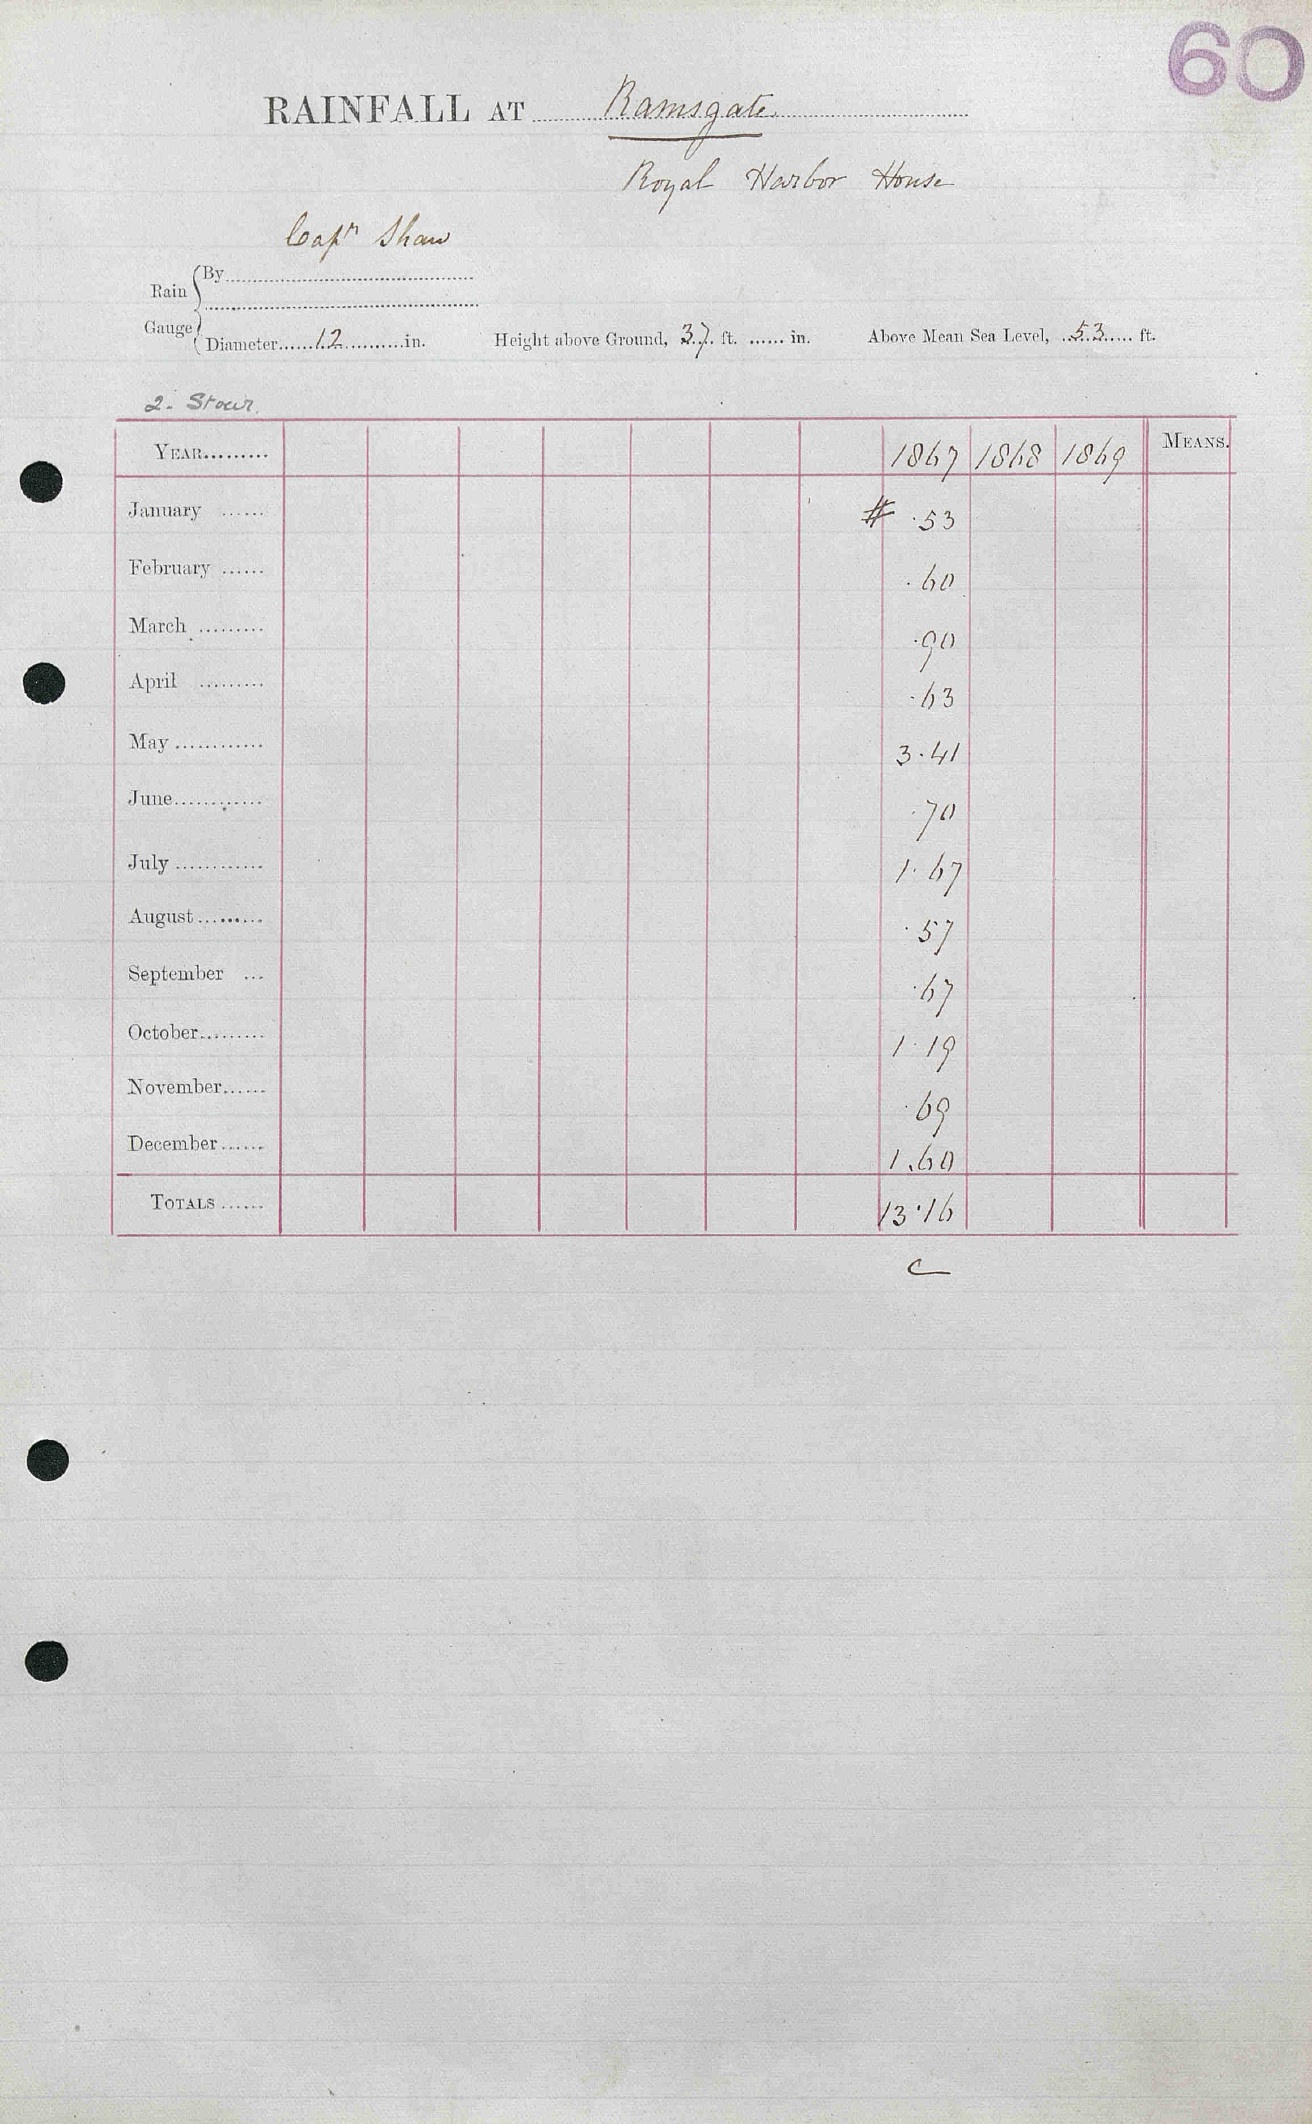 60
RAINFALL AT Ramsgate.
Royal Harbor House
Capn Shaw
Rain Gauge { By
Diameter 12 in. Height above Ground, 37 ft. in. Above Mean Sea Level, 53 ft.
2. Stour.
YEAR 1867 1868 1869 MEANS.
January # .53
February .60
March .90
April .63
May 3.41
June .70
July 1.67
August .57
September .67
October 1.19
November .69
December 1.60
TOTALS 13.16
C